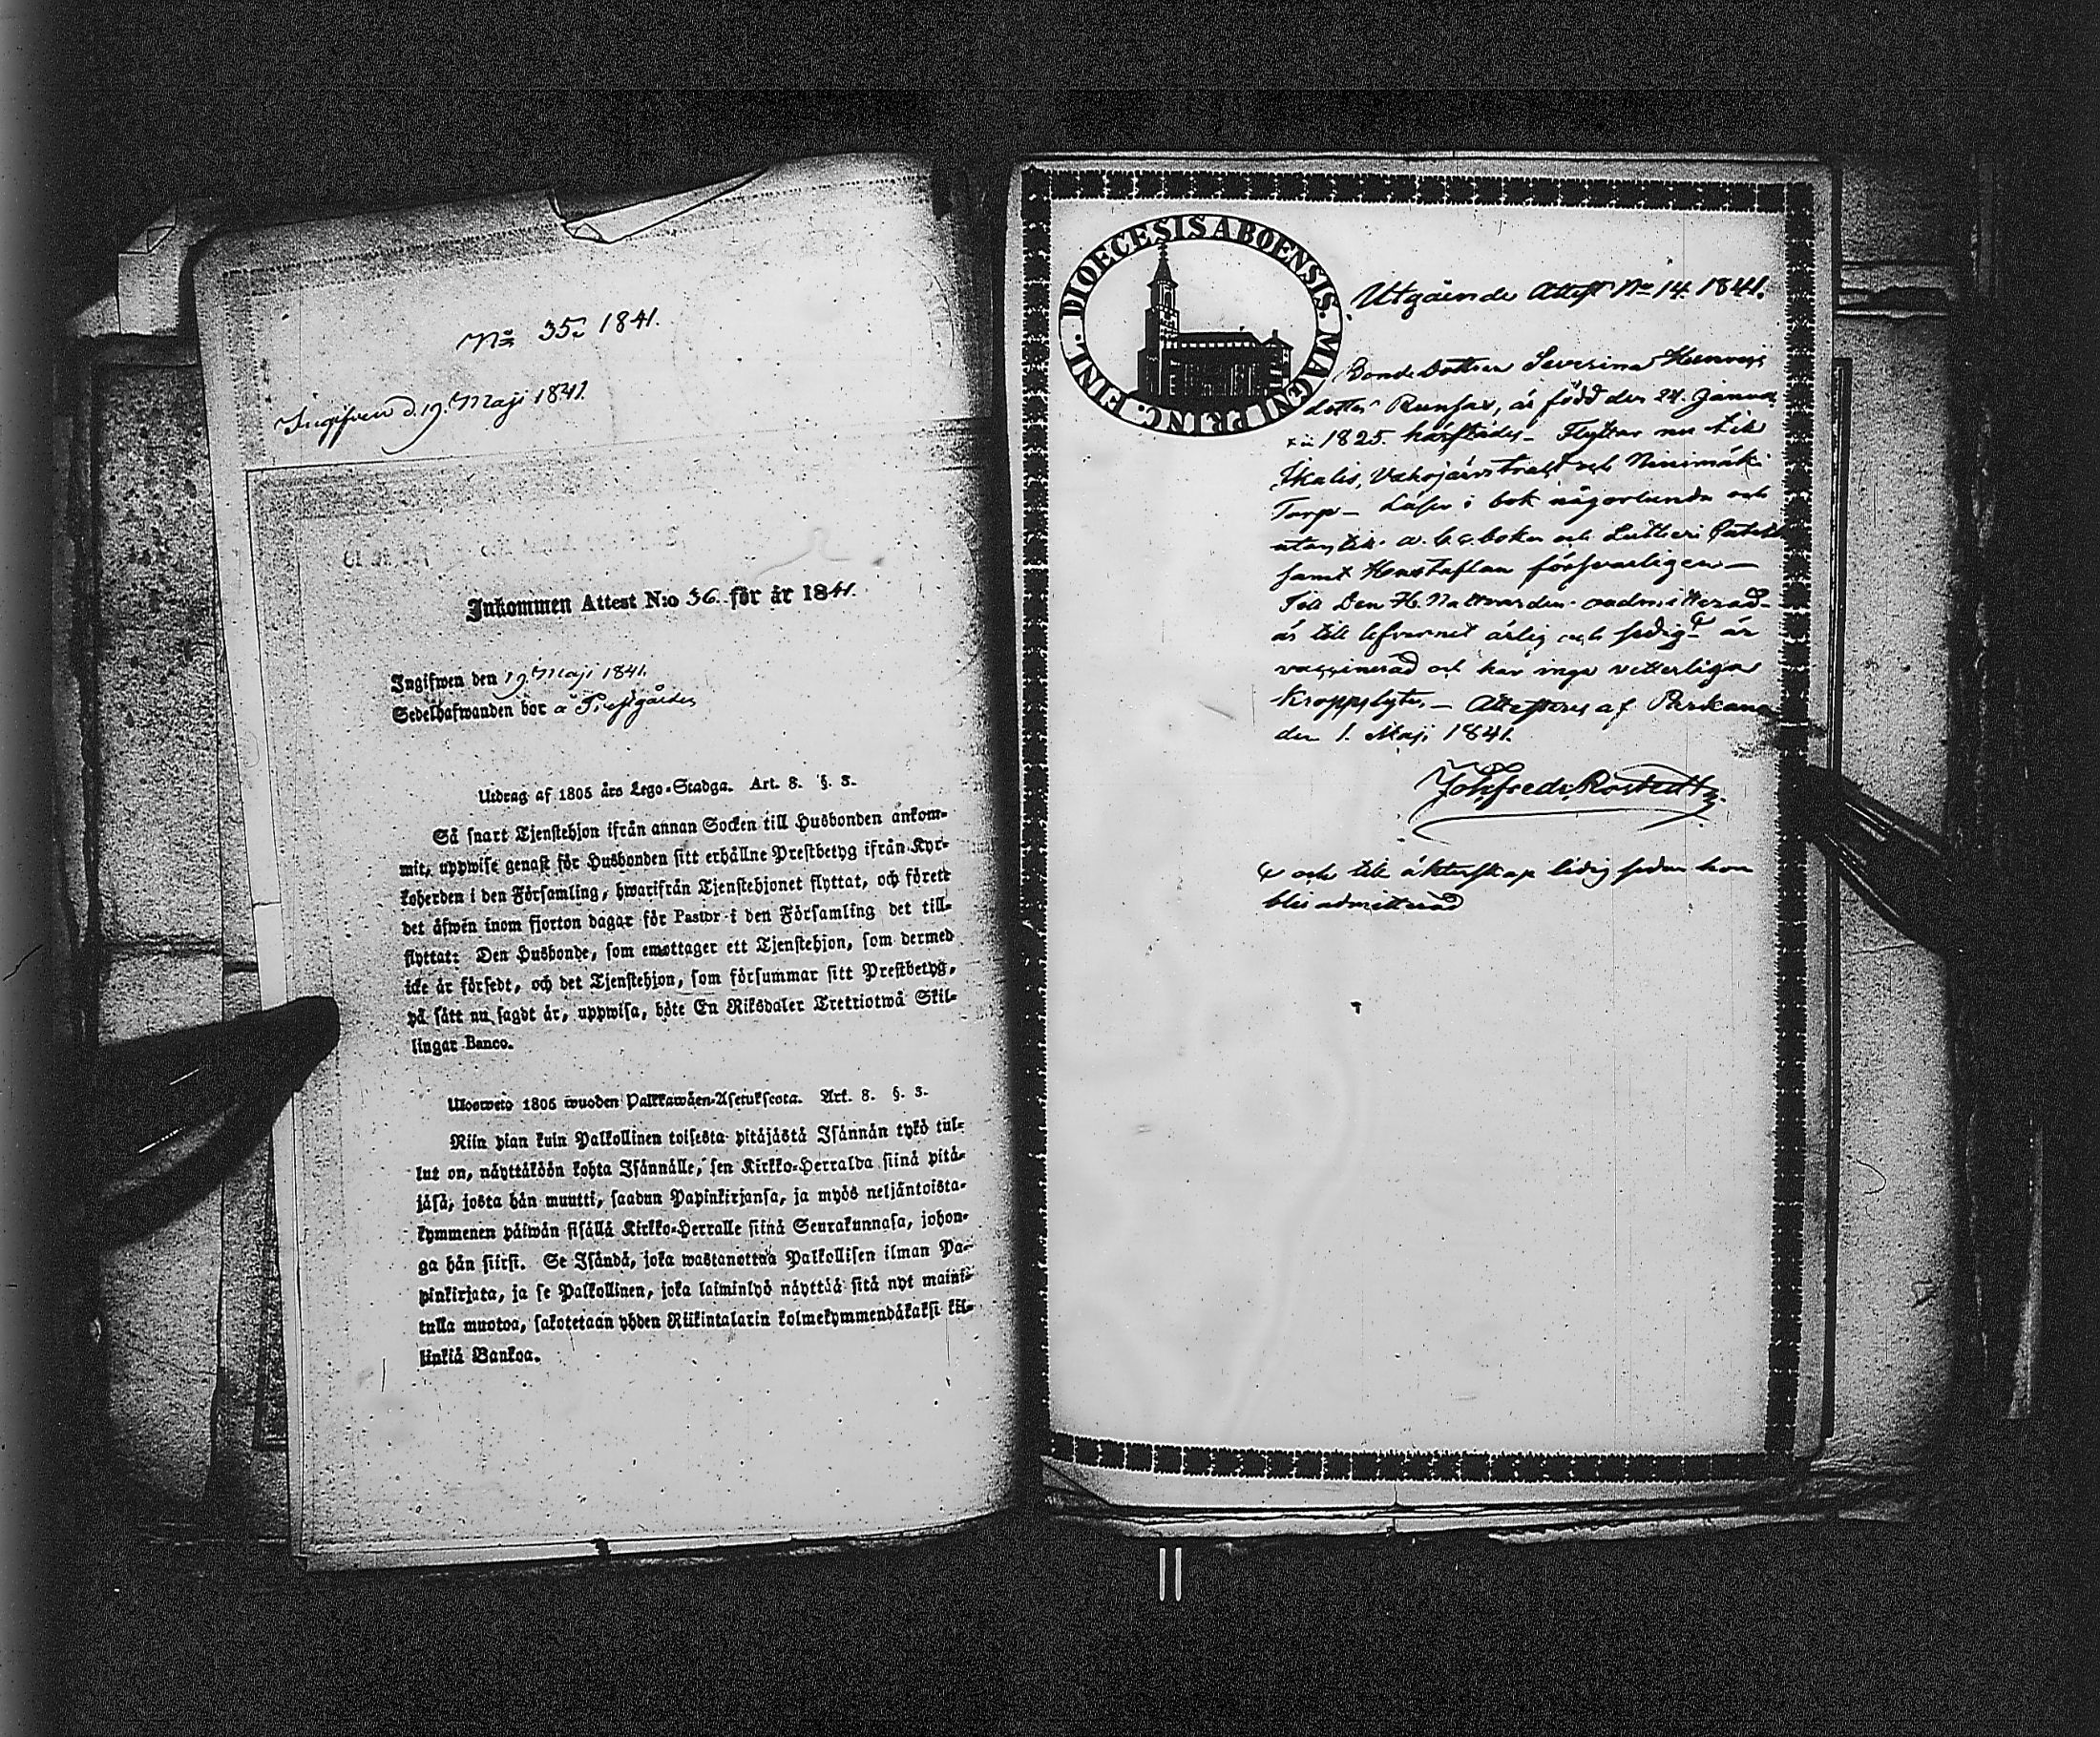 No 35. 1841.
Ingifven d. 19. Maji 1841.
Inkommen Attest N:o 36. för år 1841.
Ingifwen den 19. Maji 1841.
Sedelhafwanden bor å Prestgården
Utdrag af 1805 års Lego-Stadga. Art. 8. §. 3.
Så snart Tjenstehjon ifrån annan Socken till Husbonden ankom-
mit, uppwise genast för Husbonden sitt erhållne Prestbetyg ifrån Kyr-
koherden i den Församling, hwarifrån Tjenstehjonet flyttat, och förete
det äfwen inom fjorton dagar för Pastor i den Församling det till-
flyttat: Den Husbonde, som emottager ett Tjenstehjon, som dermed
icke är försedt, och det Tjenstehjon, som försummar sitt Prestbetyg,
på sätt nu sagdt är, uppwisa, böte En Riksdaler Tretriotwå Skil-
lingar Banco.
Ulosweto 1805 wuoden Palkkawäen-Asetuksesta. Art. 8. §. 3.
Niin pian kuin Palkollinen toisesta pitäjästä Isännän tykö tul-
lut on, näyttäköön kohta Isännälle, sen Kirkko-Herralda siinä pitä-
jäsä, josta hän muutti, saadun Papinkirjansa, ja myös neljäntoista-
kymmenen päiwän sisällä Kirkko-Herralle siinä Seurakunnasa, johon-
ga hän siirsi. Se Isändä, joka wastanottaa Palkollisen ilman Pa-
pinkirjata, ja se Palkollinen, joka laiminlyö näyttää sitä nyt maini-
tulla muotoa, sakotetaan yhden Riikintalarin kolmekymmendäkaksi kil-
linkiä Bankoa.
FINL. DIOECESIS ABOENSIS. MAGNI PRINC.
Utgående Attest No 14. 1841.
Bonde Dottren Severina Henrics
dotter Runfax, är född den 24. Janua
rii 1825. härstädes - Flyttar nu till
Ikalis, Vahojärvi trakt och Niinimäki
Torp - Läser i bok någorlunda och
utantill a. b. c. boken och Lutheri Cateches
samt Hustaflan försvarligen -
Till Den H. Nattvarden oadmitterad -
är till lefvernet ärlig och sedig är
vaccinerad och har inga vitterliga
kroppslyten. - Attesteras af Parkano
den 1. Maji 1841.
Joh. Fredr. Rostedt
och till äktenskap ledig sedan hon
blir admitterad